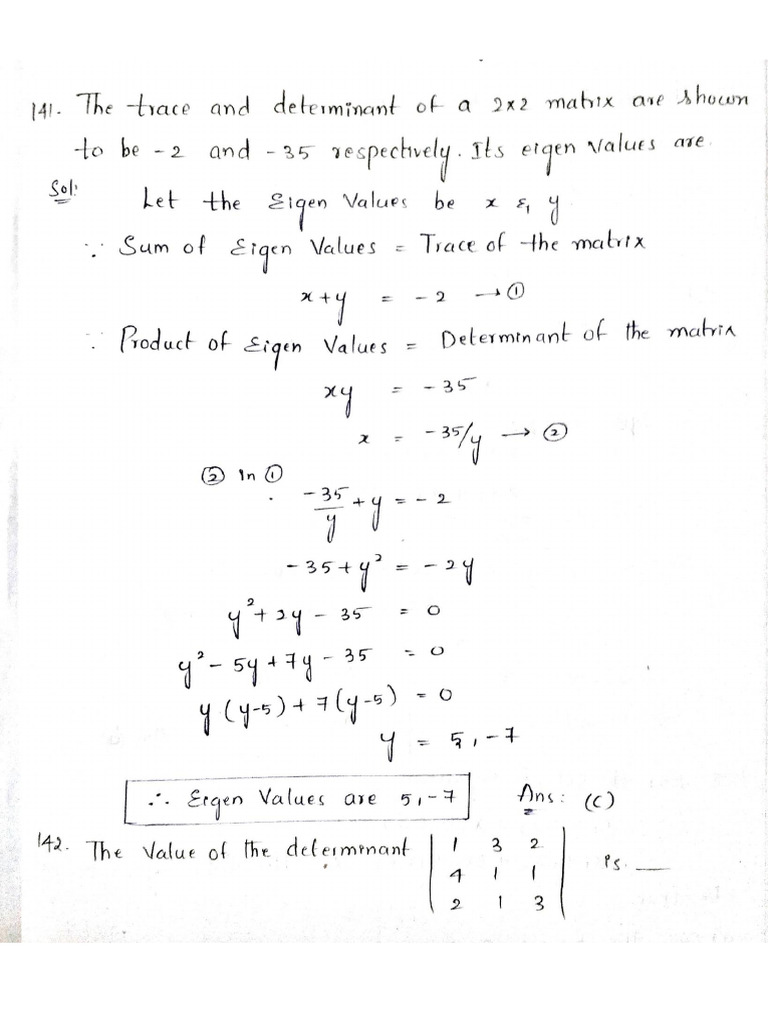 141. The trace and determinant of a 2×2 matrix are shown
to be -2 and -35 respectively. Its eigen values are.
Sol: Let the Eigen Values be x & y
∵ Sum of Eigen Values = Trace of the matrix
x+y = -2 → ①
∵ Product of Eigen Values = Determinant of the matrix
xy = -35
x = -35/y → ②
② in ①
-35/y + y = -2
-35+y² = -2y
y²+2y-35 = 0
y²-5y+7y-35 = 0
y(y-5)+7(y-5) = 0
y = 5,-7
∴ Eigen Values are 5,-7 Ans: (C)
142. The Value of the determinant | 1 3 2 | is __
| 4 1 1 |
| 2 1 3 |